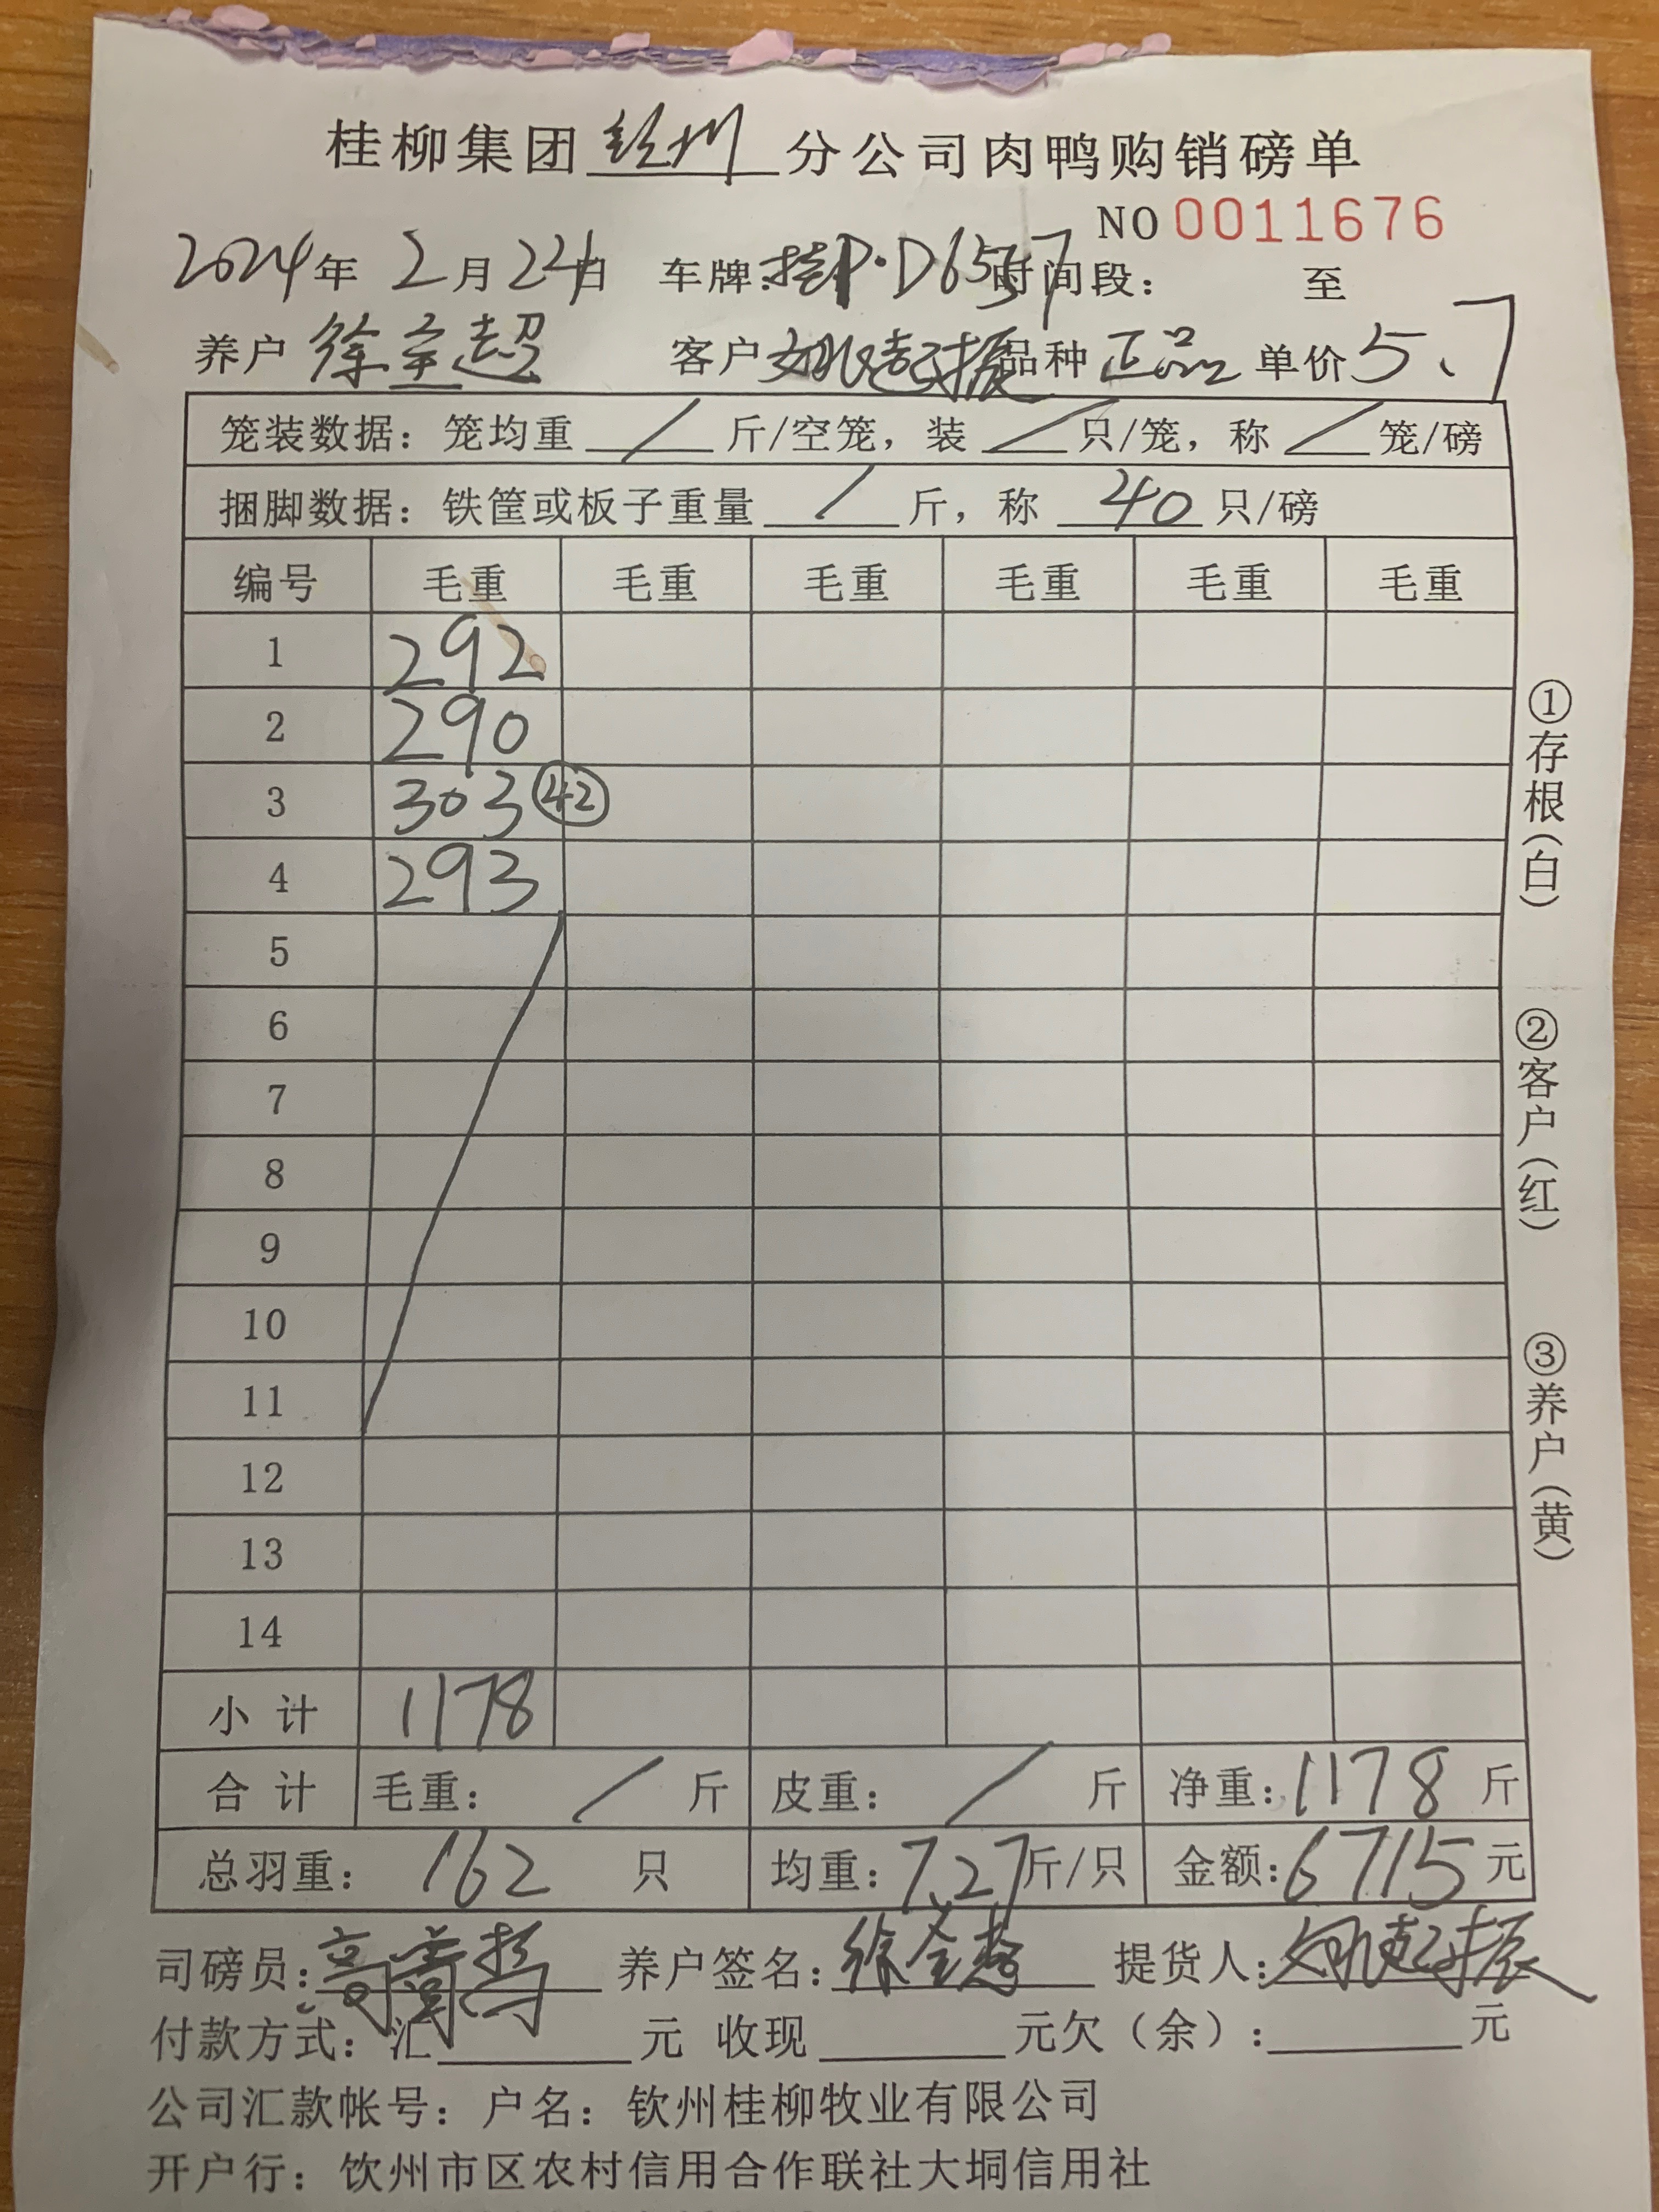 桂柳集团钦州分公司肉鸭购销磅单
NO 0011676
2024年 2月24日 车牌:桂P·D6557 时间段: 至
养户 徐全超 客户 姚起振 品种 正品 单价 5.7
笼装数据:笼均重 / 斤/空笼,装 / 只/笼,称 / 笼/磅
捆脚数据:铁筐或板子重量 / 斤,称 40 只/磅
编号 毛重 毛重 毛重 毛重 毛重 毛重
1 292
2 290
3 303 ㊷
4 293
5
6
7
8
9
10
11
12
13
14
小计 1178
合计 毛重: / 斤 皮重: / 斤 净重:1178 斤
总羽重: 162 只 均重:7.27斤/只 金额:6715元
司磅员: 养户签名:徐全超 提货人:姚起振
付款方式:汇 元 收现 元欠(余): 元
公司汇款帐号:户名:钦州桂柳牧业有限公司
开户行:钦州市区农村信用合作联社大垌信用社
①存根(白)
②客户(红)
③养户(黄)